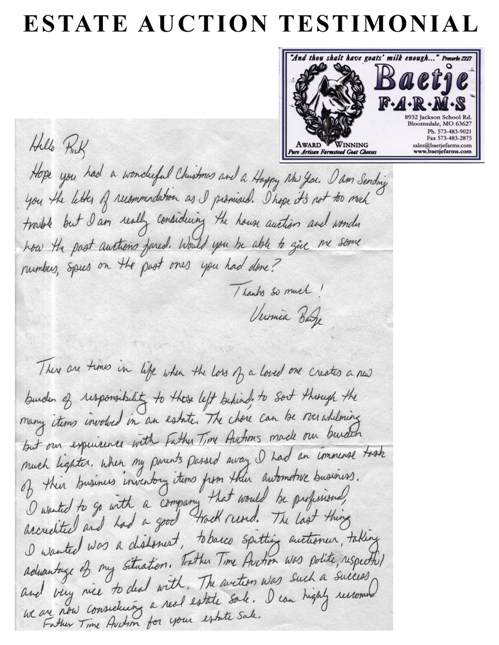 ESTATE AUCTION TESTIMONIAL
"And thou shalt have goats' milk enough..." Proverbs 27:27
Baetje
F·A·R·M·S
8932 Jackson School Rd.
Bloomsdale, MO 63627
Ph. 573-483-9021
Fax 573-483-2875
sales@baetjefarms.com
www.baetjefarms.com
AWARD WINNING
Pure Artisan Farmstead Goat Cheeses
Hello Rick
Hope you had a wonderful Christmas and a Happy New Year. I am sending
you the letter of recommendation as I promised. I hope it's not too much
trouble but I am really considering the house auction and wonder
how the past auctions fared. Would you be able to give me some
numbers, on the past ones you had done?
Thanks so much!
Veronica Baetje
There are times in life when the loss of a loved one creates a new
burden of responsibility to those left behind; to sort through the
many items involved in an estate. The chore can be overwhelming
but our experience with Father Time Auctions made our burden
much lighter. When my parents passed away I had an immense task
of their business inventory items from their automotive business.
I wanted to go with a company that would be professional,
accredited and had a good track record. The last thing
I wanted was a dishonest, tobacco spitting auctioneer, taking
advantage of my situation. Father Time Auction was polite, respectful
and very nice to deal with. The auction was such a success,
we are now considering a real estate sale. I can highly recommend
Father Time Auction for your estate sale.